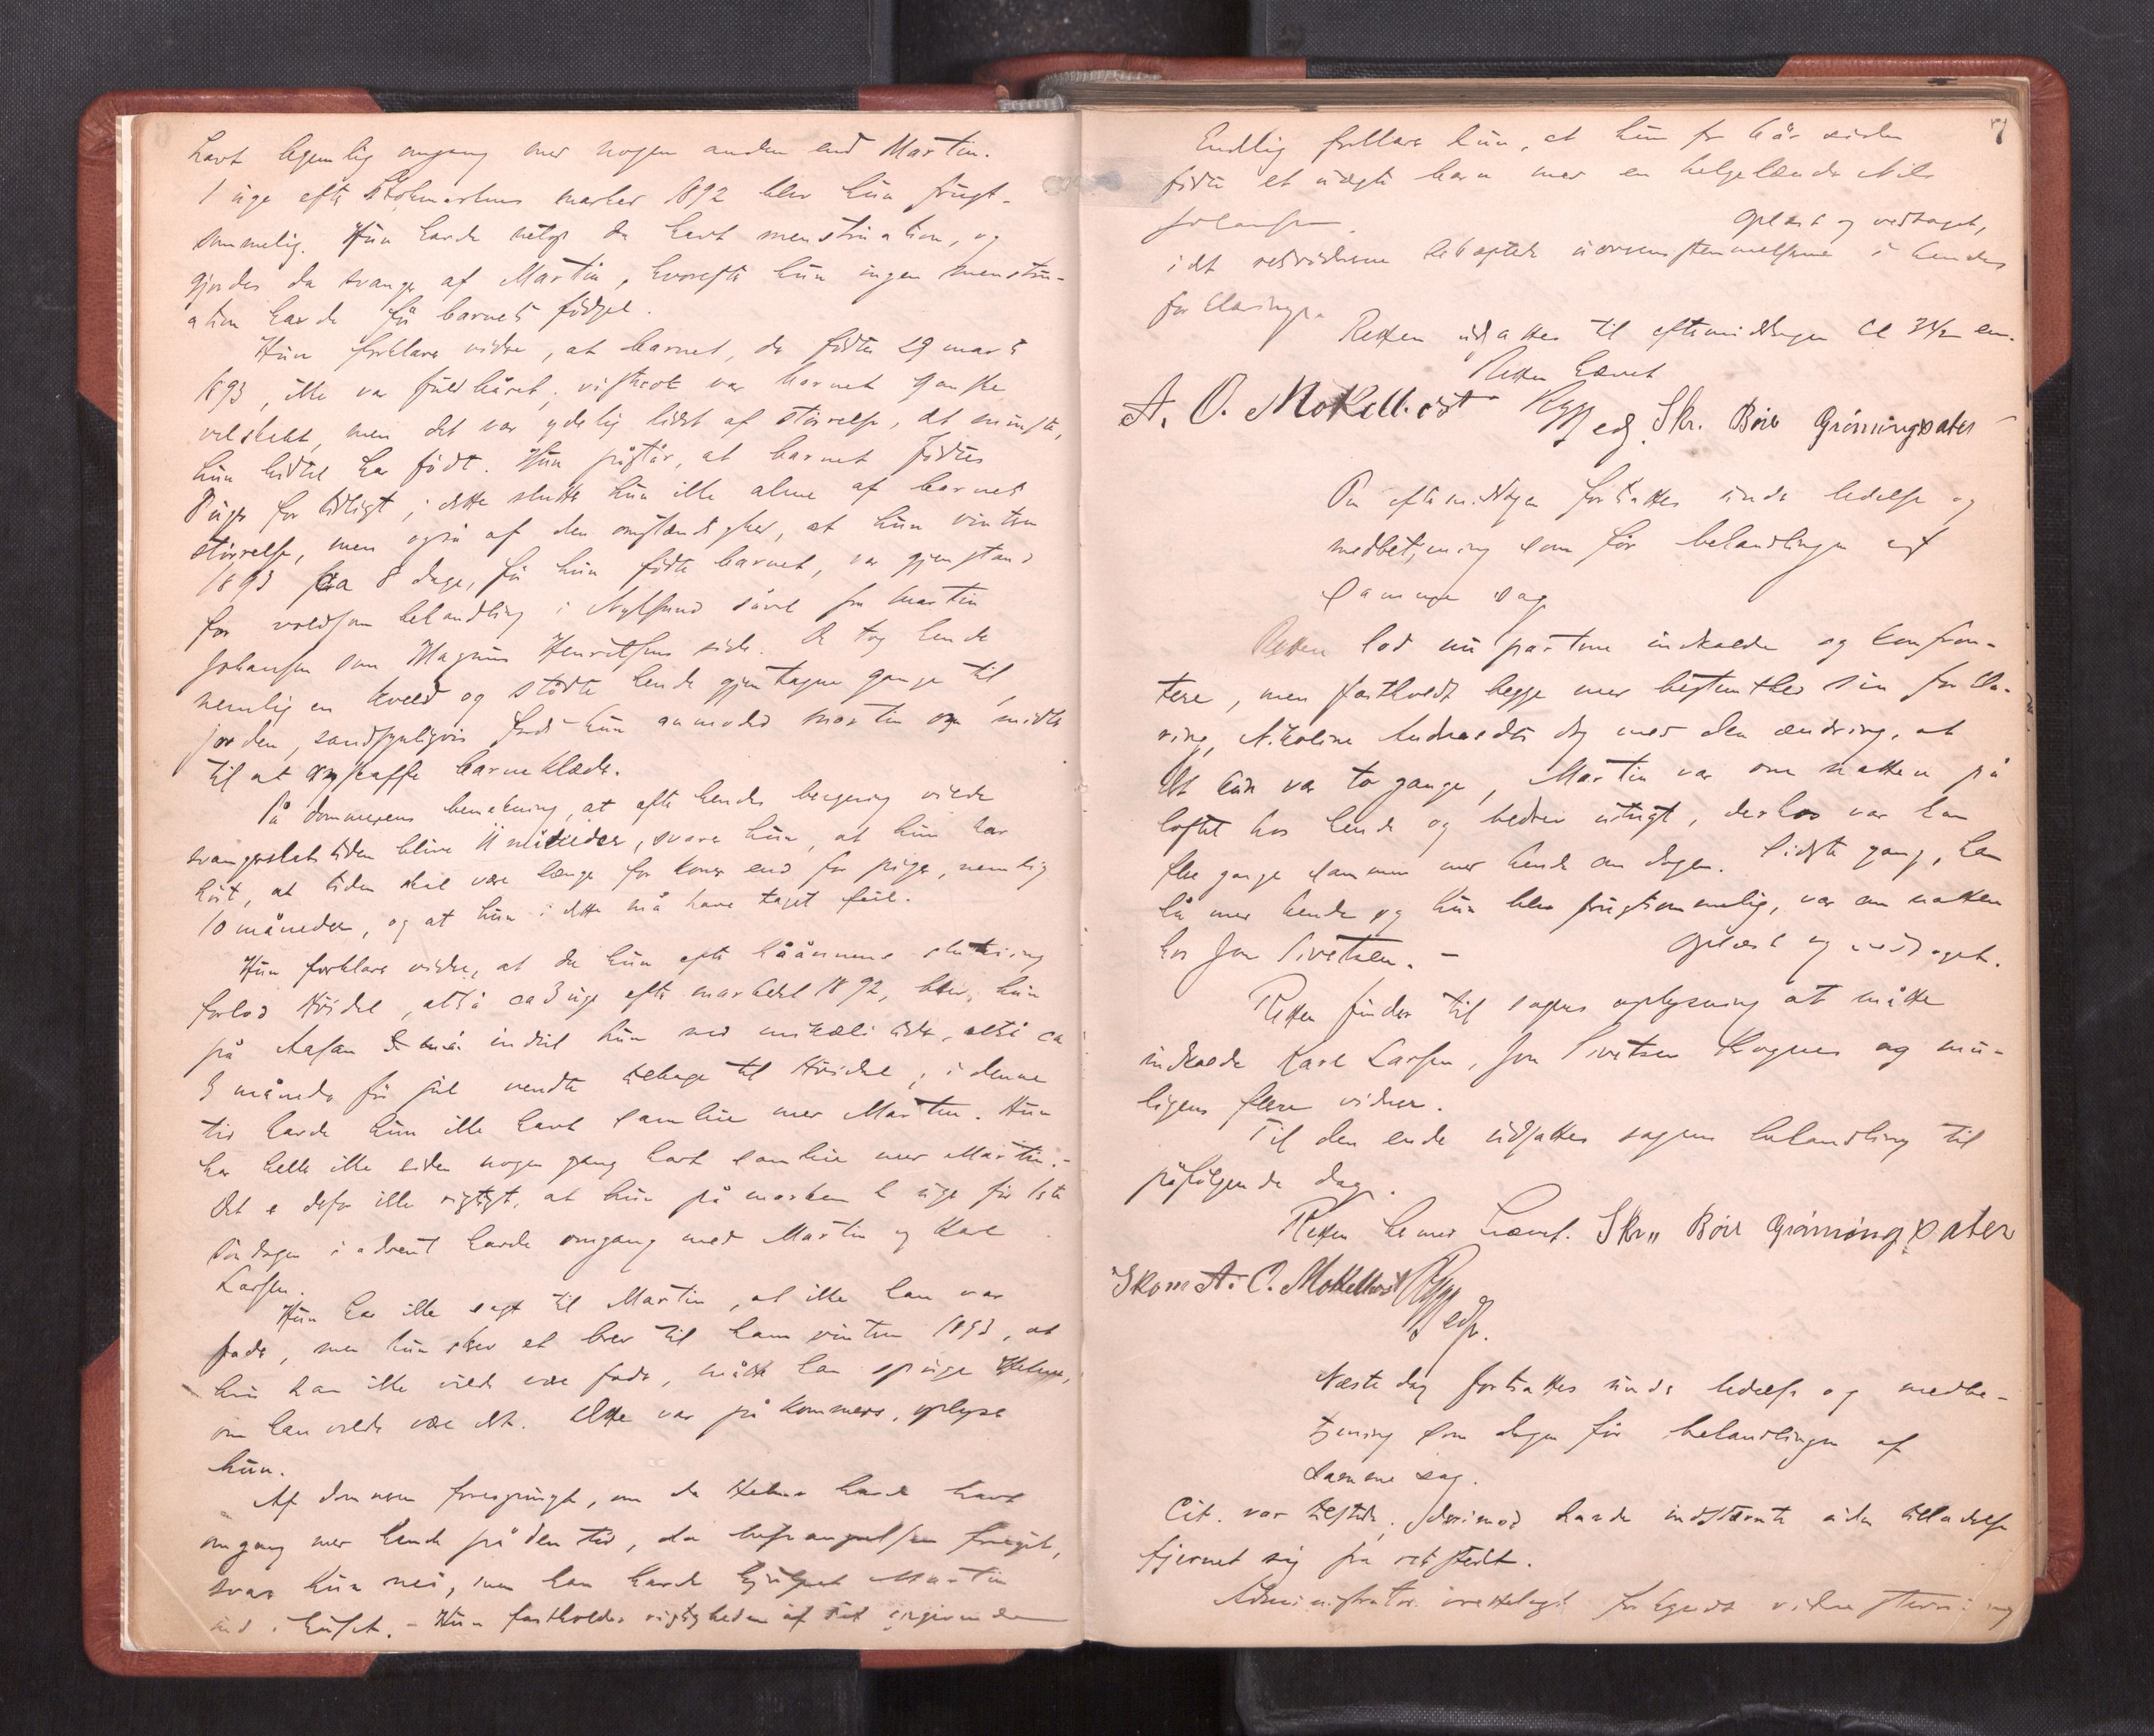 havt legemlig omgang med nogen anden end Martin.
1 uge efter Stokmarknes marked 1892 blev hun frugt-
sommelig. Hun havde netop da havt menstruation, og
gjordes da svanger af Martin, hvorefter hun ingen menstru-
ation havde før barnets fødsel.
Hun forklarer videre, at barnet, der fødtes 29 marts
1893, ikke var fuldbåret; vistnok var barnet ganske
velskabt, men det var ydelig lidet af størrelse, det mindste,
hun hidtil har født. Hun påstår, at barnet fødtes
uger for tidligt; dette slutter hun ikke alene af barnets
størrelse, men også af den omstændighed, at hun vinteren
1893 ca 8 dage, før hun fødte barnet, var gjenstand
for voldsom behandling i såvel fra Martin
Johansen som Magnus Henriksens side. De tog hende
nemlig en kveld og stødte hende gjentagne gange til
jorden, sandsynligvis fordi hun anmodet Martin om midler
til at anskaffe barneklæder.
På dommerens bemærkning, at efter hendes beregning vilde
svangerskabstiden blive 11 måneder, svarer hun, at hun har
hørt, at tiden skal være længer for koner end for piger, nemlig
10 måneder, og at hun i dette må have taget feil.
Hun forklarer videre, at da hun efter håånnens slutning
forlod Høidal, altså ca 3 uger efter markedet 1892, blev hun
på indtil hun ved mikæli tider, altså ca
3 måneder før jul vendte tilbage til Høidal; i denne
tid havde hun ikke havt samleie med Martin. Hun
har heller ikke siden nogen gang havt samleie med Martin.-
Det er derfor ikke rigtigt, at hun på marken 2 uger før 1ste
søndagen i advent havde omgang med Martin og Karl
Larsen.
Hun har ikke sagt til Martin, at ikke han var
fader, men hun skrev et brev til ham vinteren 1893, at
hvis han ikke vilde være fader, måtte han spørge Helmer,
om han vilde være det. Dette var på kommers, oplyser
hun.
Af dommeren forespurgt, om da Helmer havde havt
omgang med hende på den tid, da besvangrelsen foregik,
svarer hun nei, men han havde hjulpet Martin
ind i huset. - Hun fastholder rigtigheden af det angivende
7
Endelig forklarer hun, at hun for 6 år siden
fødte et uægte barn med en helgelænder Nils
Johansen.
Oplæst og vedtaget,
idet retsvidnerne bekræftede uoverensstemmelserne i hendes
forklaringer.
Retten udsattes til eftermiddagen kl 3½ em.
Retten hævet
A. O. Mokelbost Rygg edf. Skr. Børe Grønningsater
Om eftermiddagen fortsattes under ledelse og
medbetjening som før behandlingen af
samme sag.
Retten lod nu parterne indkalde og konfron-
tere, men fastholdt begge med bestemthed sin forkla-
ring, Nikoline Andreasdtr dog med den ændring, at
det kun var to gange, Martin var om natten på
loftet hos hende og bedrev utugt, derhos var han
flere gange sammen med hende om dagen. Sidste gang, han
lå med hende og hun blev frugtsommelig, var om natten
hos Jon Sivertsen. -
Oplæst og vedtaget.
Retten finder til sagens oplysning at måtte
indkalde Karl Larsen, Jon Sivertsen Krognes og mu-
ligens flere vidner.
Til den ende udsattes sagens behandling til
påfølgende dag.
Retten hermed hævet. Skr„ Børe Grønningsater
Skom A. O. Mokelbost Rygg
edf.
Næste dag fortsattes under ledelse og medbe-
tjening som dagen før behandlingen af
samme sag.
Cit. var tilstede; derimod havde indstævnte uden tilladelse
fjernet sig fra retsstedet.
Administrator fremlagde forkyndt vidnestevning